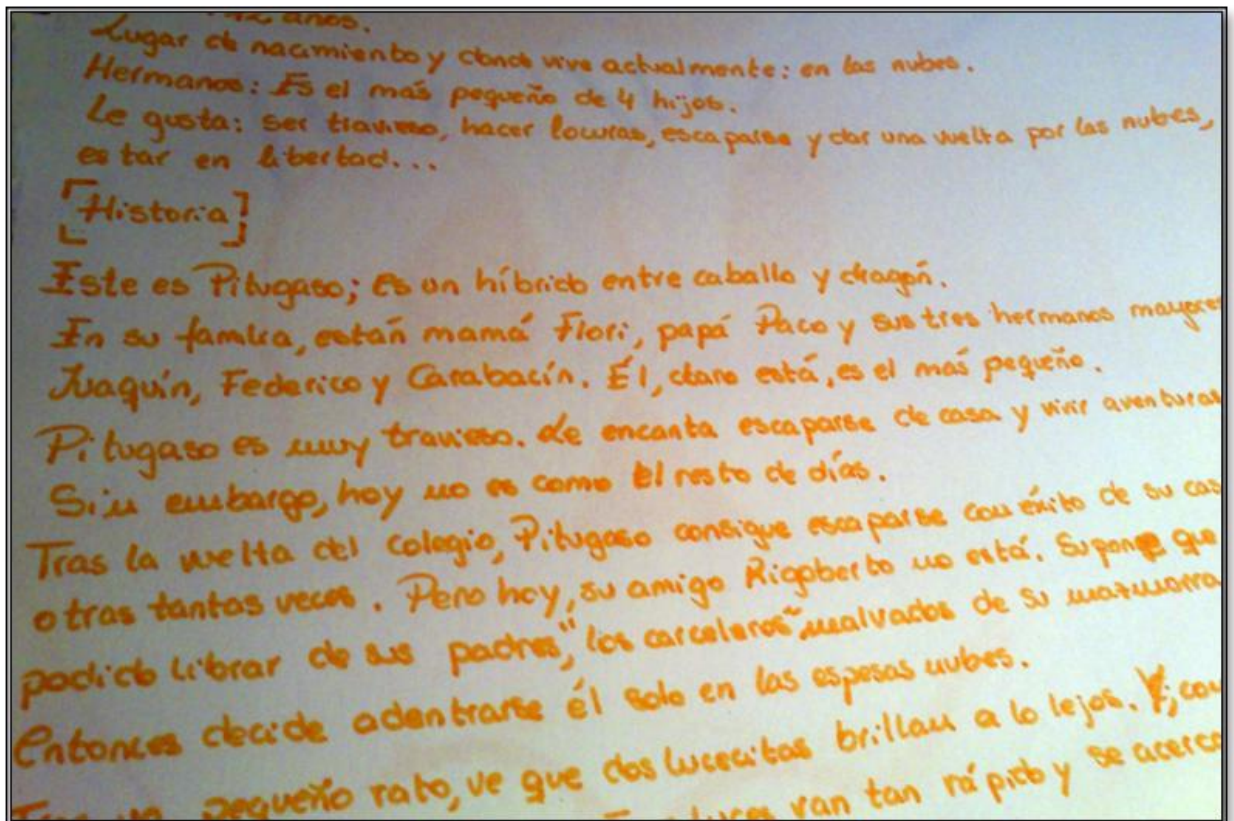 años.
Lugar de nacimiento y donde vive actualmente: en las nubes.
Hermanos: Es el más pequeño de 4 hijos.
Le gusta: ser travieso, hacer locuras, escaparse y dar una vuelta por las nubes,
estar en libertad...
[Historia]
Este es Pitugaso; es un híbrido entre caballo y dragón.
En su familia, están mamá Flori, papá Paco y sus tres hermanos mayores
Juaquín, Federico y Carabacín. Él, claro está, es el más pequeño.
Pitugaso es muy travieso. Le encanta escaparse de casa y vivir aventuras
Sin embargo, hoy no es como el resto de días.
Tras la vuelta del colegio, Pitugaso consigue escaparse con éxito de su cas
otras tantas veces. Pero hoy, su amigo Rigoberto no está. Supone que
podido librar de sus padres, "los carceleros" malvados de su mazmorra
Entonces decide adentrarse él solo en las espesas nubes.
pequeño rato, ve que dos lucecitas brillan a lo lejos. Y, con
luces van tan rápido y se acerca